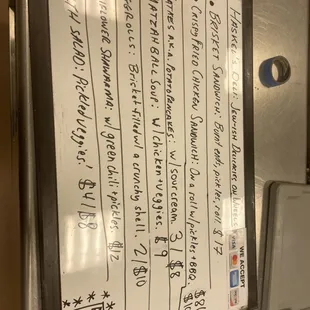 Haskel's Deli: Jewish Delicacies on Wheels
• Brisket Sandwich: Burnt ends, pickles, roll $17
• Crispy Fried Chicken Sandwich: On a roll w/ pickles + BBQ
Latkes A.K.A. Potato Pancakes: w/ sour cream 3/$8
Matzah Ball Soup: w/ chicken & veggies: $9
Eggrolls: Brisket filled w/ a crunchy shell. 2/$10
Shawarma: w/ green chili + pickles. $12
Salad: Pickled veggies!
WE ACCEPT
VISA